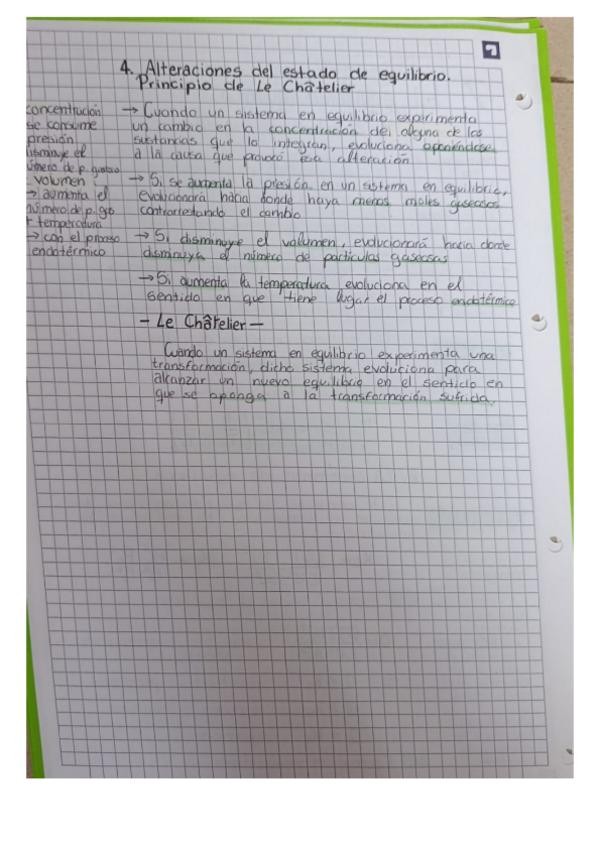 4. Alteraciones del estado de equilibrio.
Principio de Le Châtelier
→ Cuando un sistema en equilibrio experimenta
un cambio en la concentración de alguna de las
sustancias que lo integran, evoluciona oponiéndose
a la causa que provocó esa alteración
→ Si se aumenta la presión en un sistema en equilibrio,
evolucionará hacia donde haya menos moles gaseosos
contrarrestando el cambio
→ Si disminuye el volumen, evolucionará hacia donde
disminuya el número de partículas gaseosas
→ Si aumenta la temperatura evoluciona en el
sentido en que tiene lugar el proceso endotérmico
- Le Châtelier -
Cuando un sistema en equilibrio experimenta una
transformación, dicho sistema evoluciona para
alcanzar un nuevo equilibrio en el sentido en
que se oponga a la transformación sufrida.
concentración
se consume
presión
disminuye el
número de p. gaseosas
volumen
→ aumenta el
número de p. gas
+ temperatura
→ con el proceso
endotérmico